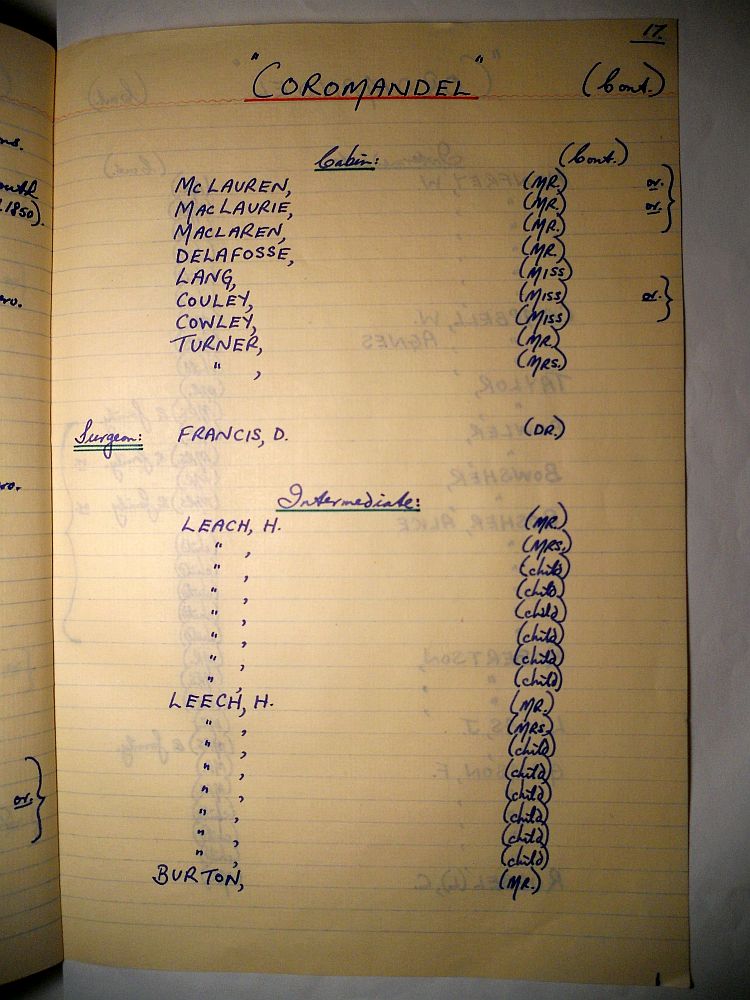 17.
"COROMANDEL" (Cont.)
Cabin: (Cont.)
McLAUREN, (MR.) or.
MacLAURIE, (MR.) or.
MACLAREN, (MR.)
DELAFOSSE, (MR.)
LANG, (MISS)
COULEY, (MISS) or.
COWLEY, (MISS)
TURNER, (MR.)
" , (MRS.)
Surgeon: FRANCIS, D. (DR.)
Intermediate:
LEACH, H. (MR.)
" , (MRS.)
" , (child)
" , (child)
" , (child)
" , (child)
" , (child)
" , (child)
LEECH, H. (MR.)
" , (MRS.)
" , (child)
" , (child)
" , (child)
" , (child)
" , (child)
" , (child)
BURTON, (MR.)
1850).
or.